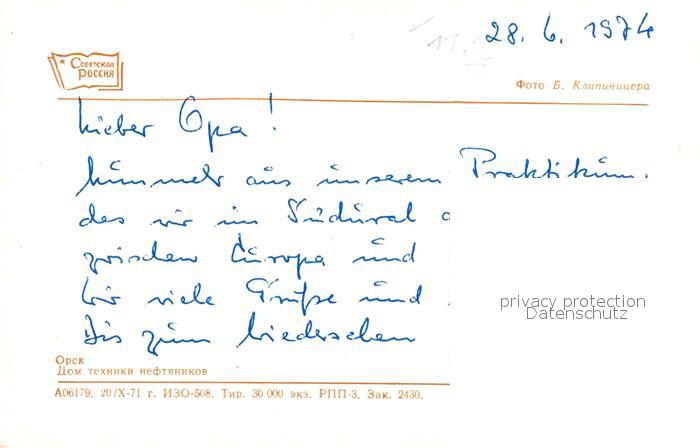 28. 6. 1974
Советская
Россия
Фото Б. Клипиницера
Lieber Opa!
aus unserem Praktikum.
das wir im Südural
zwischen Europa und
wir viele Grüße und
Bis zum Wiedersehen
privacy protection
Datenschutz
Орск
Дом техники нефтяников
А06179. 20/X-71 г. ИЗО-508. Тир. 30 000 экз. РПП-3. Зак. 2430.